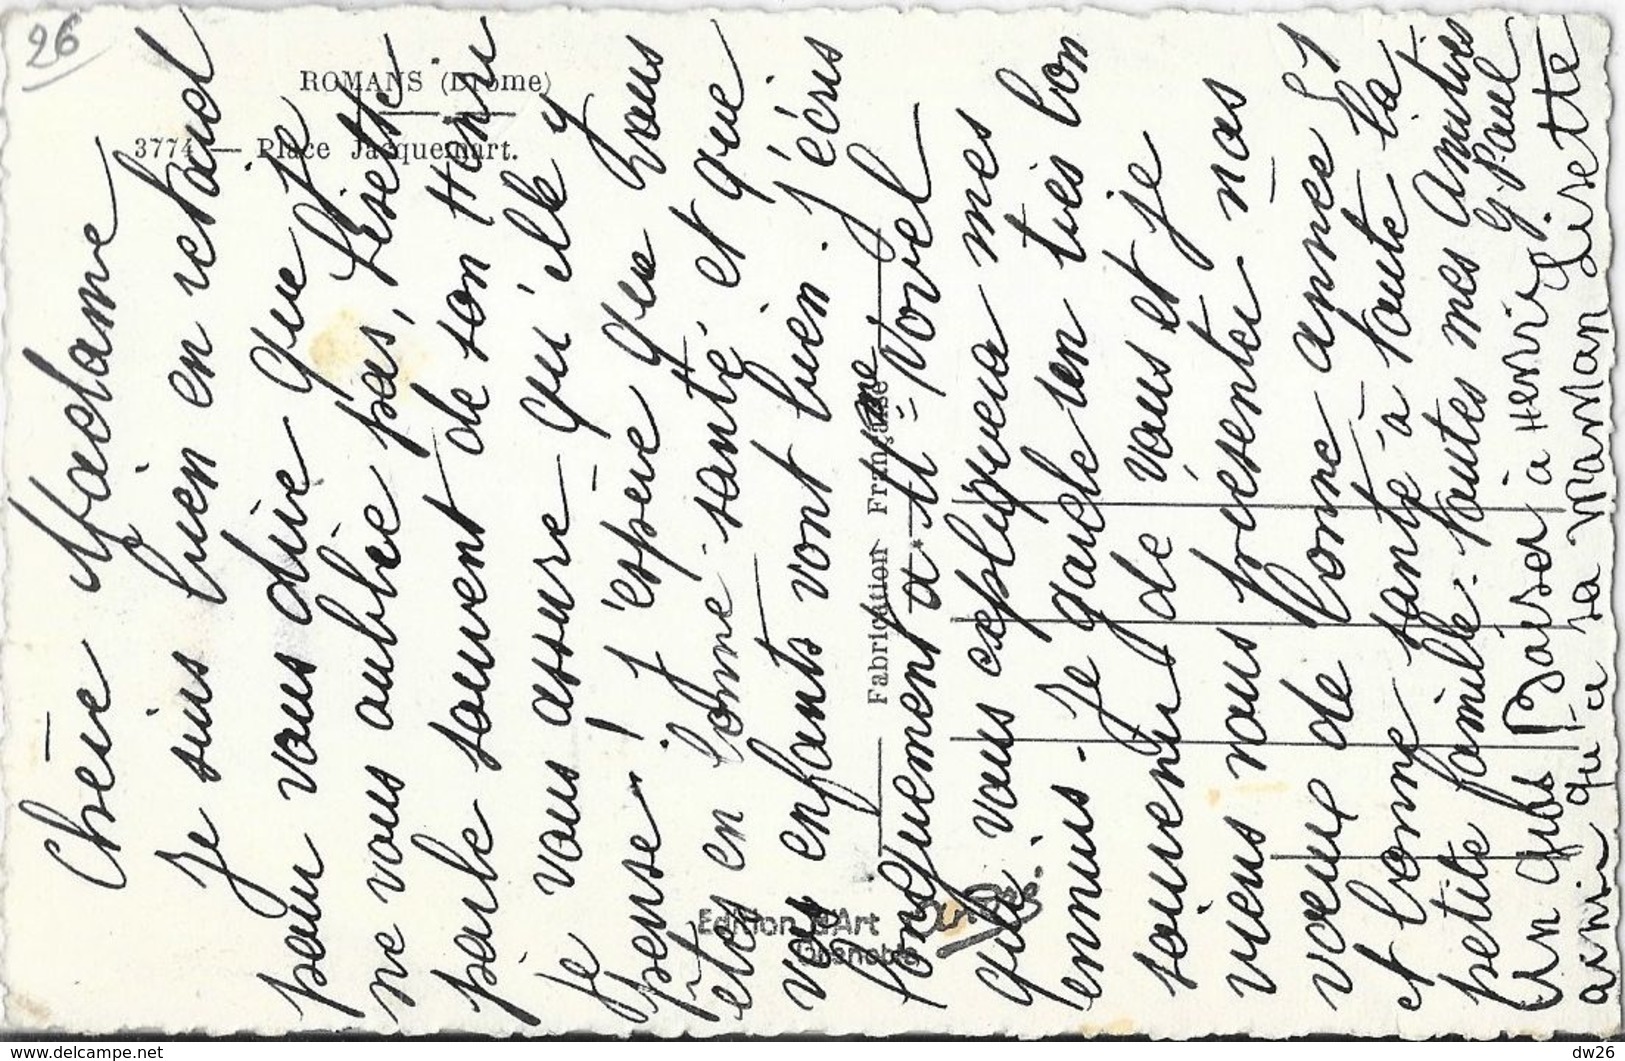 26
ROMANS (Drôme)
3774 — Place Jacquemart.
Chère Madame
Je suis bien en retard
pour vous dire que je
ne vous oublie pas, Lisette
parle souvent de son Henri
je vous assure qu'elle y
pense! J'espère que vous
êtes en bonne santé, et que
vos enfants vont bien. J'écris
longuement à Mme Novel
qui vous expliquera mes
ennuis. Je garde un très bon
souvenir de vous et je
viens vous présenter nos
voeux de bonne année et
et bonne santé à toute la
petite famille. toutes mes amitiés
Un gros Baiser à Henri G. Paul
ainsi qu'a sa maman Lisette
Fabrication Française
Edition d'Art
Grenoble
André
delcampe.net
dw26